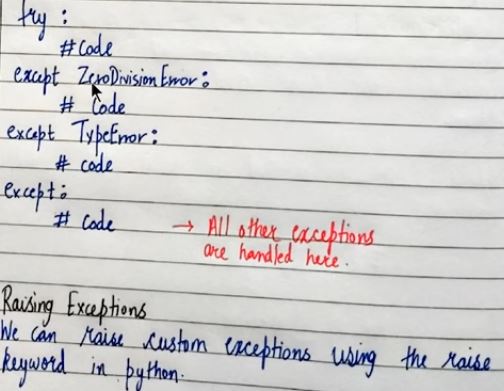 try :
# Code
except ZeroDivisionError:
# Code
except TypeError:
# code
except:
# Code → All other exceptions
are handled here.
Raising Exceptions
We can raise custom exceptions using the raise
keyword in python.